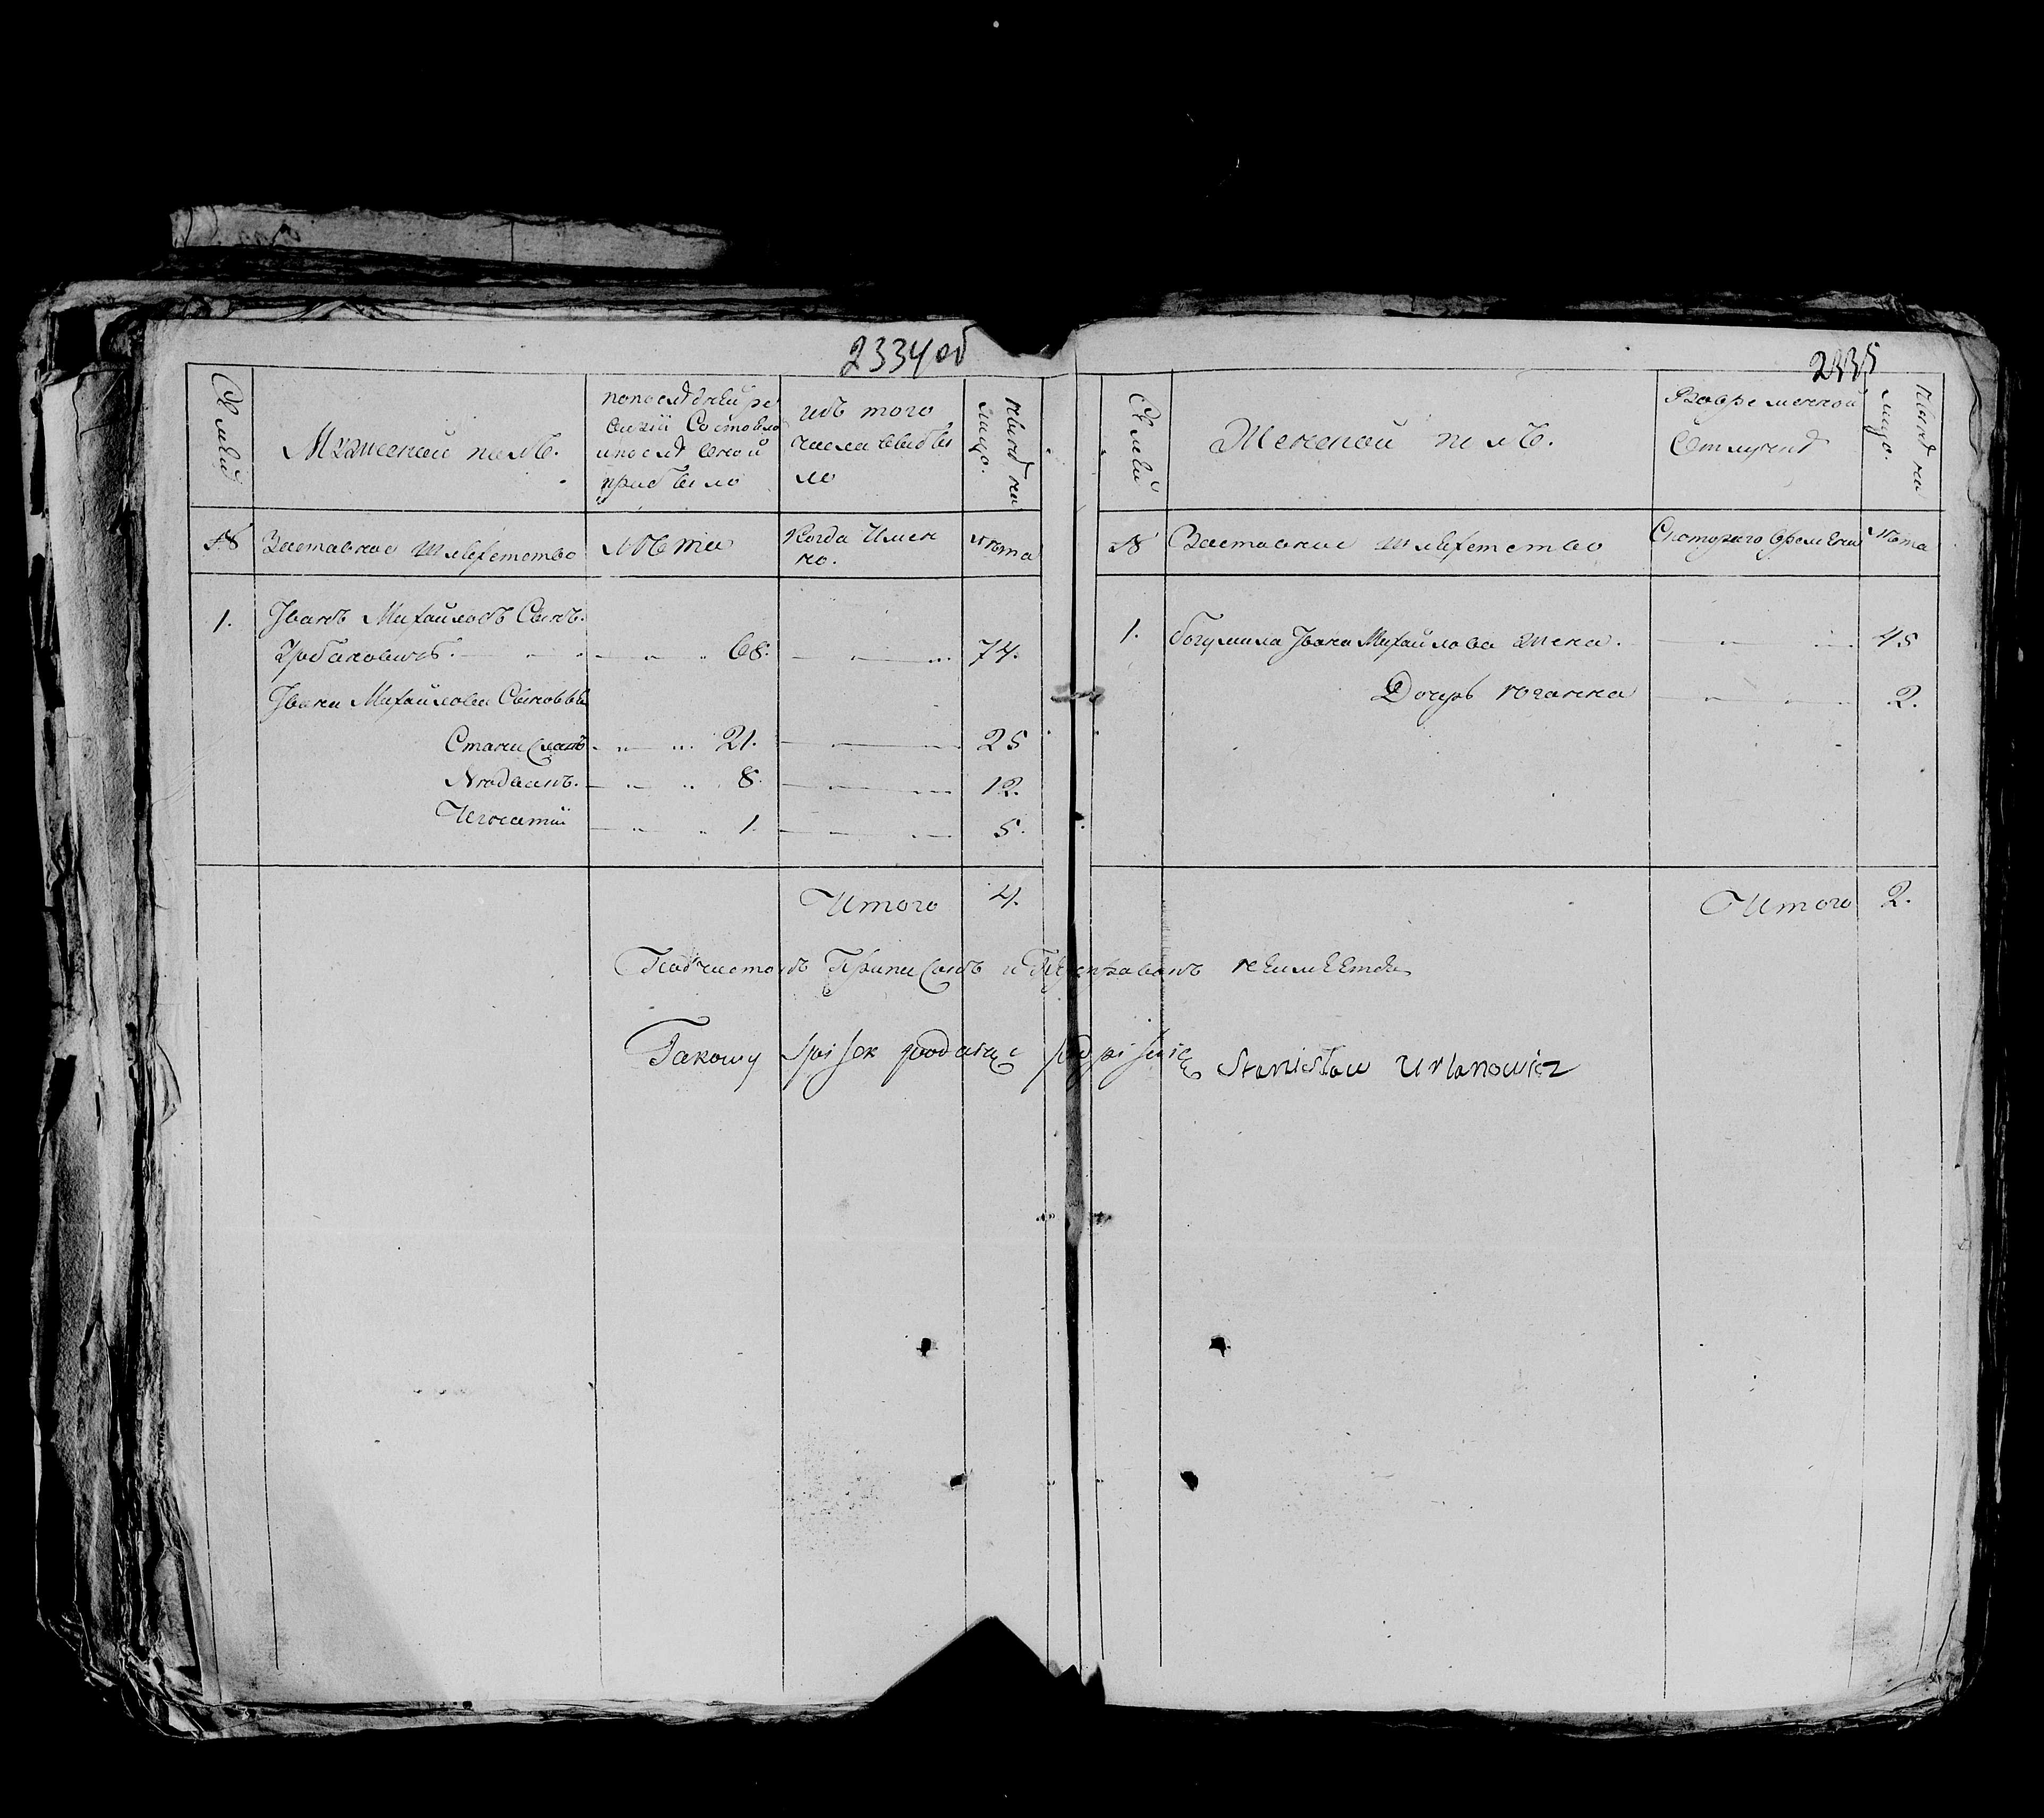 2334 об
Семьи
Мужеской полъ.
попоследней ре
визiи Состояло
ипоследъ оной
прибыло
изъ того
числа выбы
ло
ныне на
лицо.
№
Заставное шляхетство
лѣта
Когда Имен
но.
лѣта
1.
Іванъ Михайловъ Сынъ.
Урбановичъ. 68. 74.
Івана Михайлова Сыновья
Станиславъ 21. 25
8. 12.
Игнатій 1. 5.
Итого 4.
2335
Семьи
Женской полъ.
Вовременной
Отлучке
ныне на
лицо.
№
Заставное шляхетство
Скоторого Времени
Лѣта
1. Богумила Івана Михайлова жена. 45
Дочерь Юганна 2.
Итого 2.
неимеетса
Takowy Spisek podaiąc podpisuię Stanisław Urbanowicz